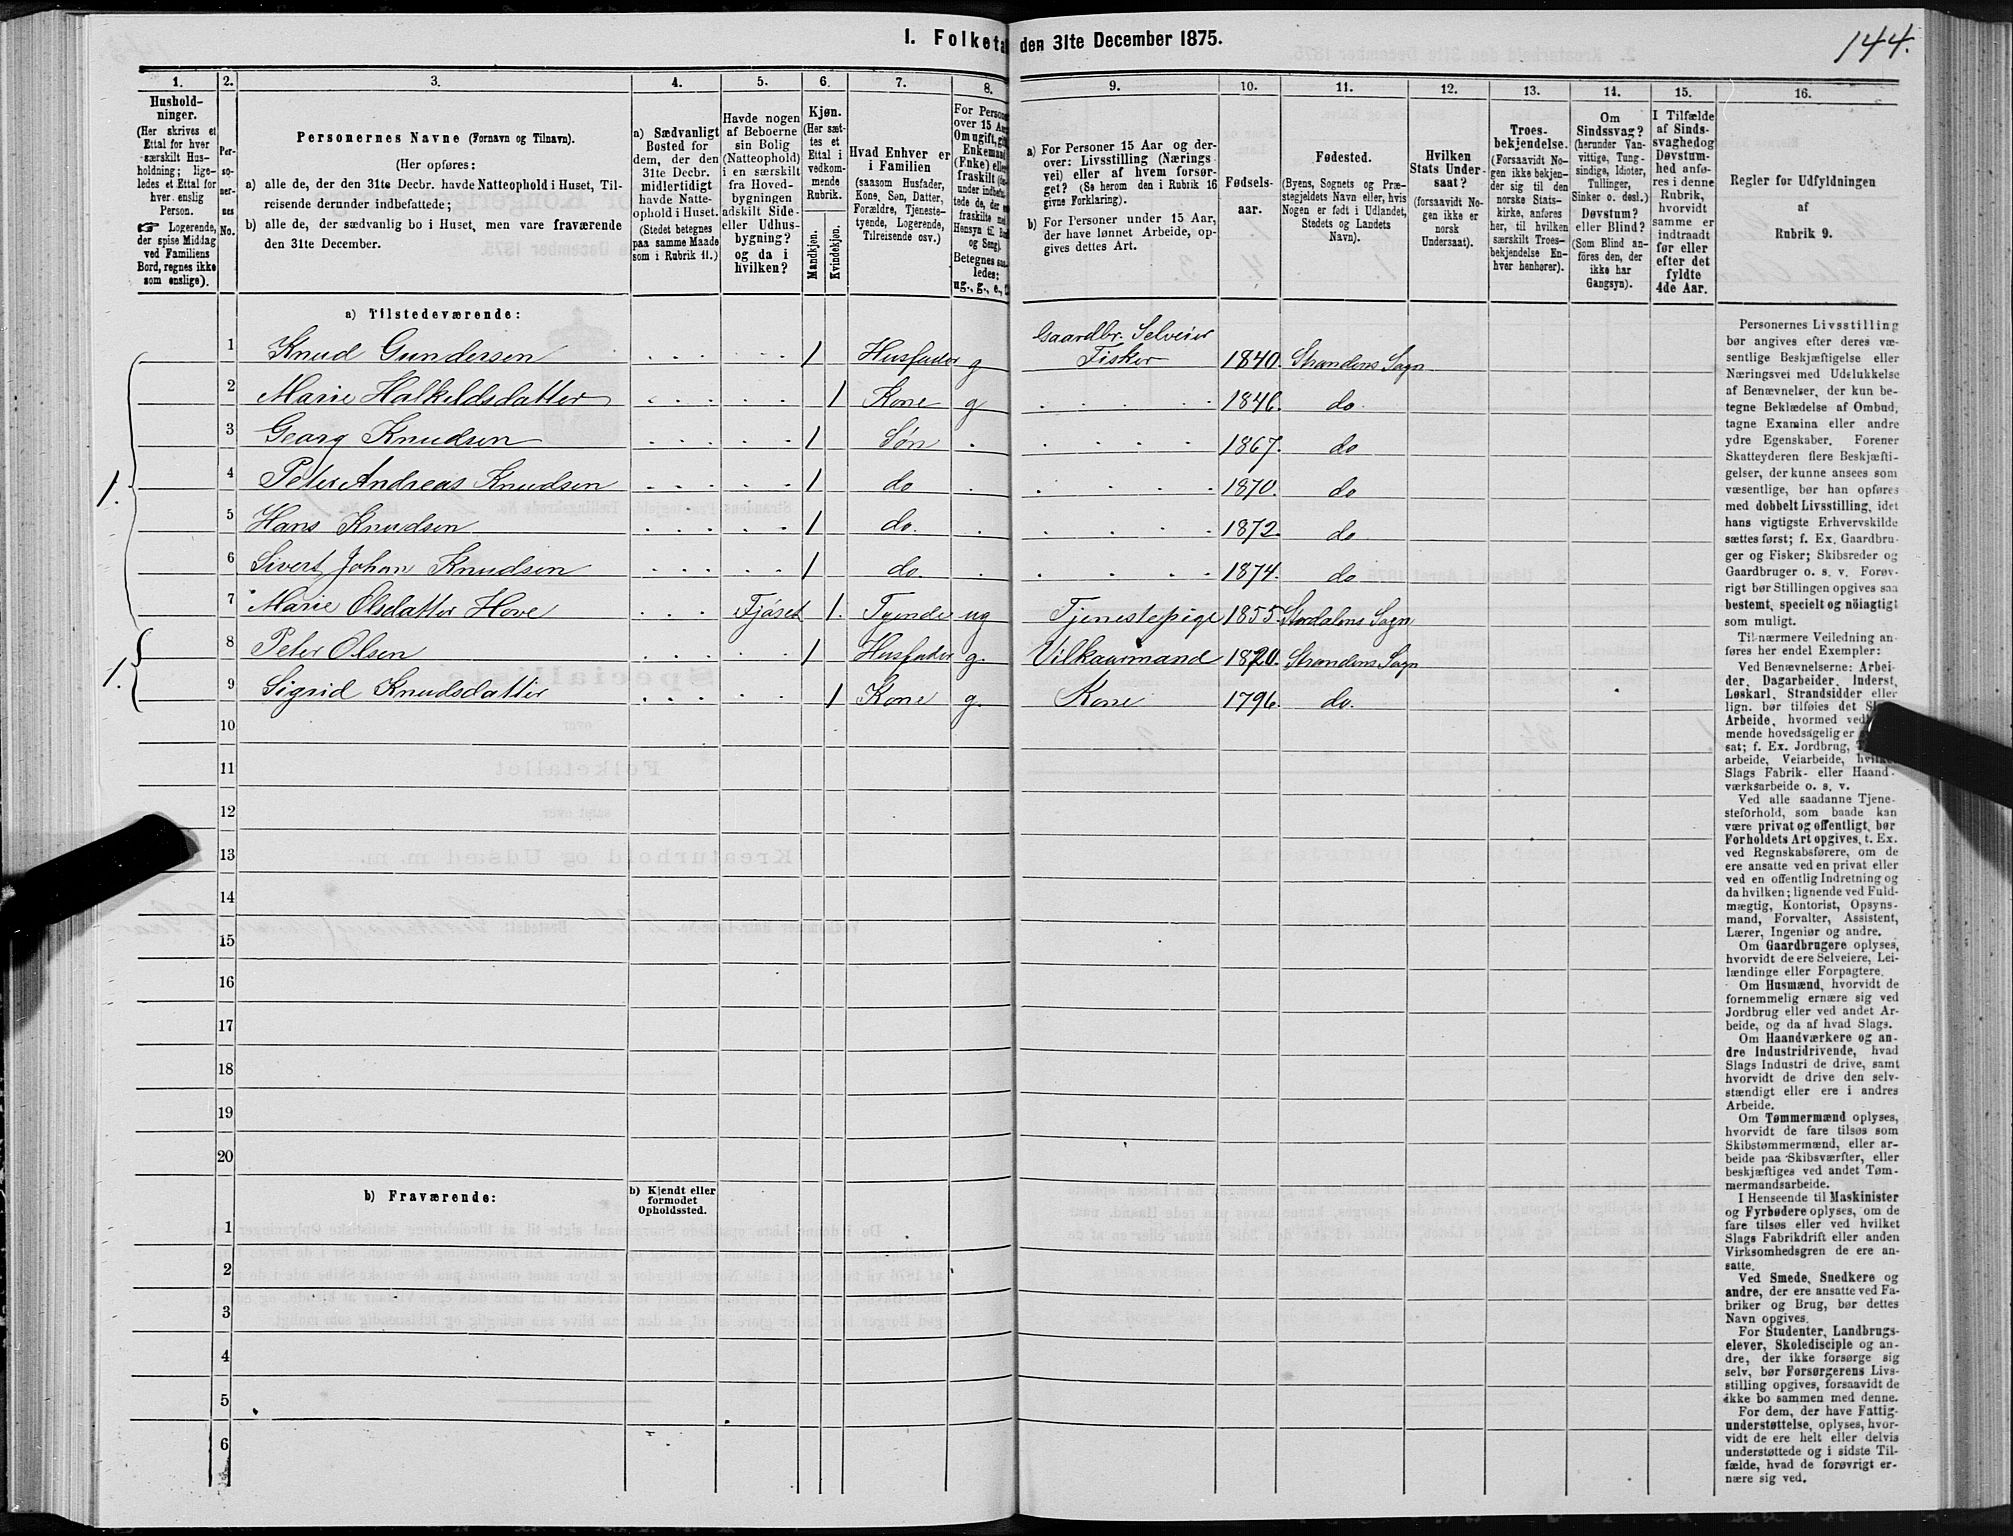 I. Folketa den 31te December 1875.
144.
1. 2. 3. 4. 5. 6. 7. 8. 9. 10. 11. 12. 13. 14. 15. 16.
Hushold-
ninger.
(Her skrives et
Ettal for hver
særskilt Hus-
holdning; lige-
ledes et Ettal for
hver enslig
Person.
☞ Logerende,
der spise Middag
ved Familiens
Bord, regnes ikke
som enslige).
Per-
so-
ner-
nes
No.
Personernes Navne (Fornavn og Tilnavn).
(Her opføres:
a) alle de, der den 31te Decbr. havde Natteophold i Huset, Til-
reisende derunder indbefattede;
b) alle de, der sædvanlig bo i Huset, men vare fraværende
den 31te December.
a) Sædvanligt
Bosted for
dem, der den
31te Decbr.
midlertidigt
havde Natte-
ophold i Huset.
(Stedet betegnes
paa samme Maade
som i Rubrik 11.)
Havde nogen
af Beboerne
sin Bolig
(Natteophold)
i en særskilt
fra Hoved-
bygningen
adskilt Side-
eller Udhus-
bygning?
og da i
hvilken?
Kjøn.
(Her sæt-
tes et
Ettal i
vedkom-
mende
Rubrik.
Mandkjøn.
Kvindekjøn.
Hvad Enhver er
i Familien
(saasom Husfader,
Kone, Søn, Datter,
Forældre, Tjeneste-
tyende, Logerende,
Tilreisende osv.)
For Persone
over 15 Aa
Om ugift, gi
Enkemand
(Fnke) elle
fraskilt
under indbefat-
tede de, der
fraskilte
Hensyn til
og Seng).
Betegnes saa-
ledes:
ug., g., e.,
a) For Personer 15 Aar og der-
over: Livsstilling (Nærings-
vei) eller af hvem forsør-
get? (Se herom den i Rubrik 16
givne Forklaring).
b) For Personer under 15 Aar,
der have lønnet Arbeide, op-
gives dettes Art.
Fødsels-
aar.
Fødested.
(Byens, Sognets og Præ-
stegjeldets Navn eller, hvis
Nogen er født i Udlandet,
Stedets og Landets
Navn).
Hvilken
Stats Under-
saat?
(forsaavidt No-
gen ikke er
norsk
Undersaat).
Troes-
bekjendelse.
(Forsaavidt No-
gen ikke bekjen-
der sig til den
norske Stats-
kirke, anføres
her, til hvilken
særskilt Troes-
bekjendelse En-
hver henhører).
Om
Sindssvag?
(herunder Van-
vittige, Tung-
sindige, Idioter,
Tullinger,
Sinker o. desl.)
Døvstum?
eller Blind?
(Som Blind an-
föres den, der
ikke har
Gangsyn).
I Tilfælde
af Sinds-
svaghed og
Døvstum-
hed anfø-
res i denne
Rubrik,
hvorvidt
samme er
indtraadt
før eller
efter det
fyldte
4de Aar.
Regler for Udfyldningen
af
Rubrik 9.
a) Tilstedeværende:
1. 1 Knud Gundersen 1 Husfader g Gaardbr. Selveier Fisker 1840. Strandens Sogn
2 Marie Halkeldsdatter 1 Kone g 1846. do.
3 Georg Knudsen 1 Søn 1867. do
4 Peter Andreas Knudsen 1 do 1870. do
5 Hans Knudsen 1 do. 1872. do
6 Sivert Johan Knudsen 1 do. 1874. do
7 Marie Olsdatter Hove Fjöset 1. Tyende ug Tjenestepige 1855. Stordalens Sogn
1. 8 Peter Olsen 1 Husfader g. Vilkaarmand 1820. Strandens Sogn
9 Sigrid Knudsdatter 1 Kone g. Kone 1796. do.
10
11
12
13
14
15
16
17
18
19
20
b) Fraværende:
b) Kjendt eller
formodet
Opholdssted.
1
2
3
4
5
6
Personernes Livsstilling
bør angives efter deres væ-
sentlige Beskjæftigelse eller
Næringsvei med Udelukkelse
af Benævnelser, der kun be-
tegne Beklædelse af Ombud,
tagne Examina eller andre
ydre Egenskaber. Forener
Skatteyderen flere Beskjæfti-
gelser, der kunne ansees som
væsentlige, bør han opføres
med dobbelt Livsstilling, idet
hans vigtigste Erhvervskilde
sættes først; f. Ex. Gaardbru-
ger og Fisker; Skibsreder og
Gaardbruger o. s. v. Forøv-
rigt bør Stillingen opgives saa
bestemt, specielt og nöiagtigt
som muligt.
Til nærmere Veiledning an-
føres her endel Exempler:
Ved Benævnelserne: Arbei-
der, Dagarbeider, Inderst,
Løskarl, Strandsidder eller
lign. bør tilføies det Sl
Arbeide, hvormed ved
mende hovedsagelig er
sat; f. Ex. Jordbrug,
arbeide, Veiarbeide, hvilke
Slags Fabrik- eller Haand-
værksarbeide o. s. v.
Ved alle saadanne Tjene-
steforhold, som baade kan
være privat og offentligt, bør
Forholdets Art opgives, t. Ex.
ved Regnskabsførere, om de
ere ansatte ved en privat eller
ved en offentlig Indretning og
da hvilken; lignende ved Fuld-
mægtig, Kontorist, Opsyns-
mand, Forvalter, Assistent,
Lærer, Ingeniør og andre.
Om Gaardbrugere oplyses,
hvorvidt de ere Selveiere, Lei-
lændinge eller Forpagtere.
Om Husmænd, hvorvidt de
fornemmelig ernære sig ved
Jordbrug eller ved andet Ar-
beide, og da af hvad Slags.
Om Haandværkere og an-
dre Industridrivende, hvad
Slags Industri de drive, samt
hvorvidt de drive den selv-
stændigt eller ere i andres
Arbeide.
Om Tømmermænd oplyses,
hvorvidt de fare tilsøs som
Skibstømmermænd, eller ar-
beide paa Skibsværfter, eller
beskjæftiges ved andet Tøm-
mermandsarbeide.
I Henseende til Maskinister
og Fyrbødere oplyses, om de
fare tilsøs eller ved hvilket
Slags Fabrikdrift eller anden
Virksomhedsgren de ere an-
satte.
Ved Smede, Snedkere og
andre, der ere ansatte ved Fa-
briker og Brug, bør dettes
Navn opgives.
For Studenter, Landbrugs-
elever, Skoledisciple og an-
dre, der ikke forsørge sig
selv, bør Forsørgerens Livs-
stilling opgives, forsaavidt de
ikke bo sammen med denne.
For dem, der have Fattig-
understøttelse, oplyses, hvor-
vidt de ere helt eller delvis
understøttede og i sidste Til-
fælde, hvad de forøvrigt er-
nære sig ved.